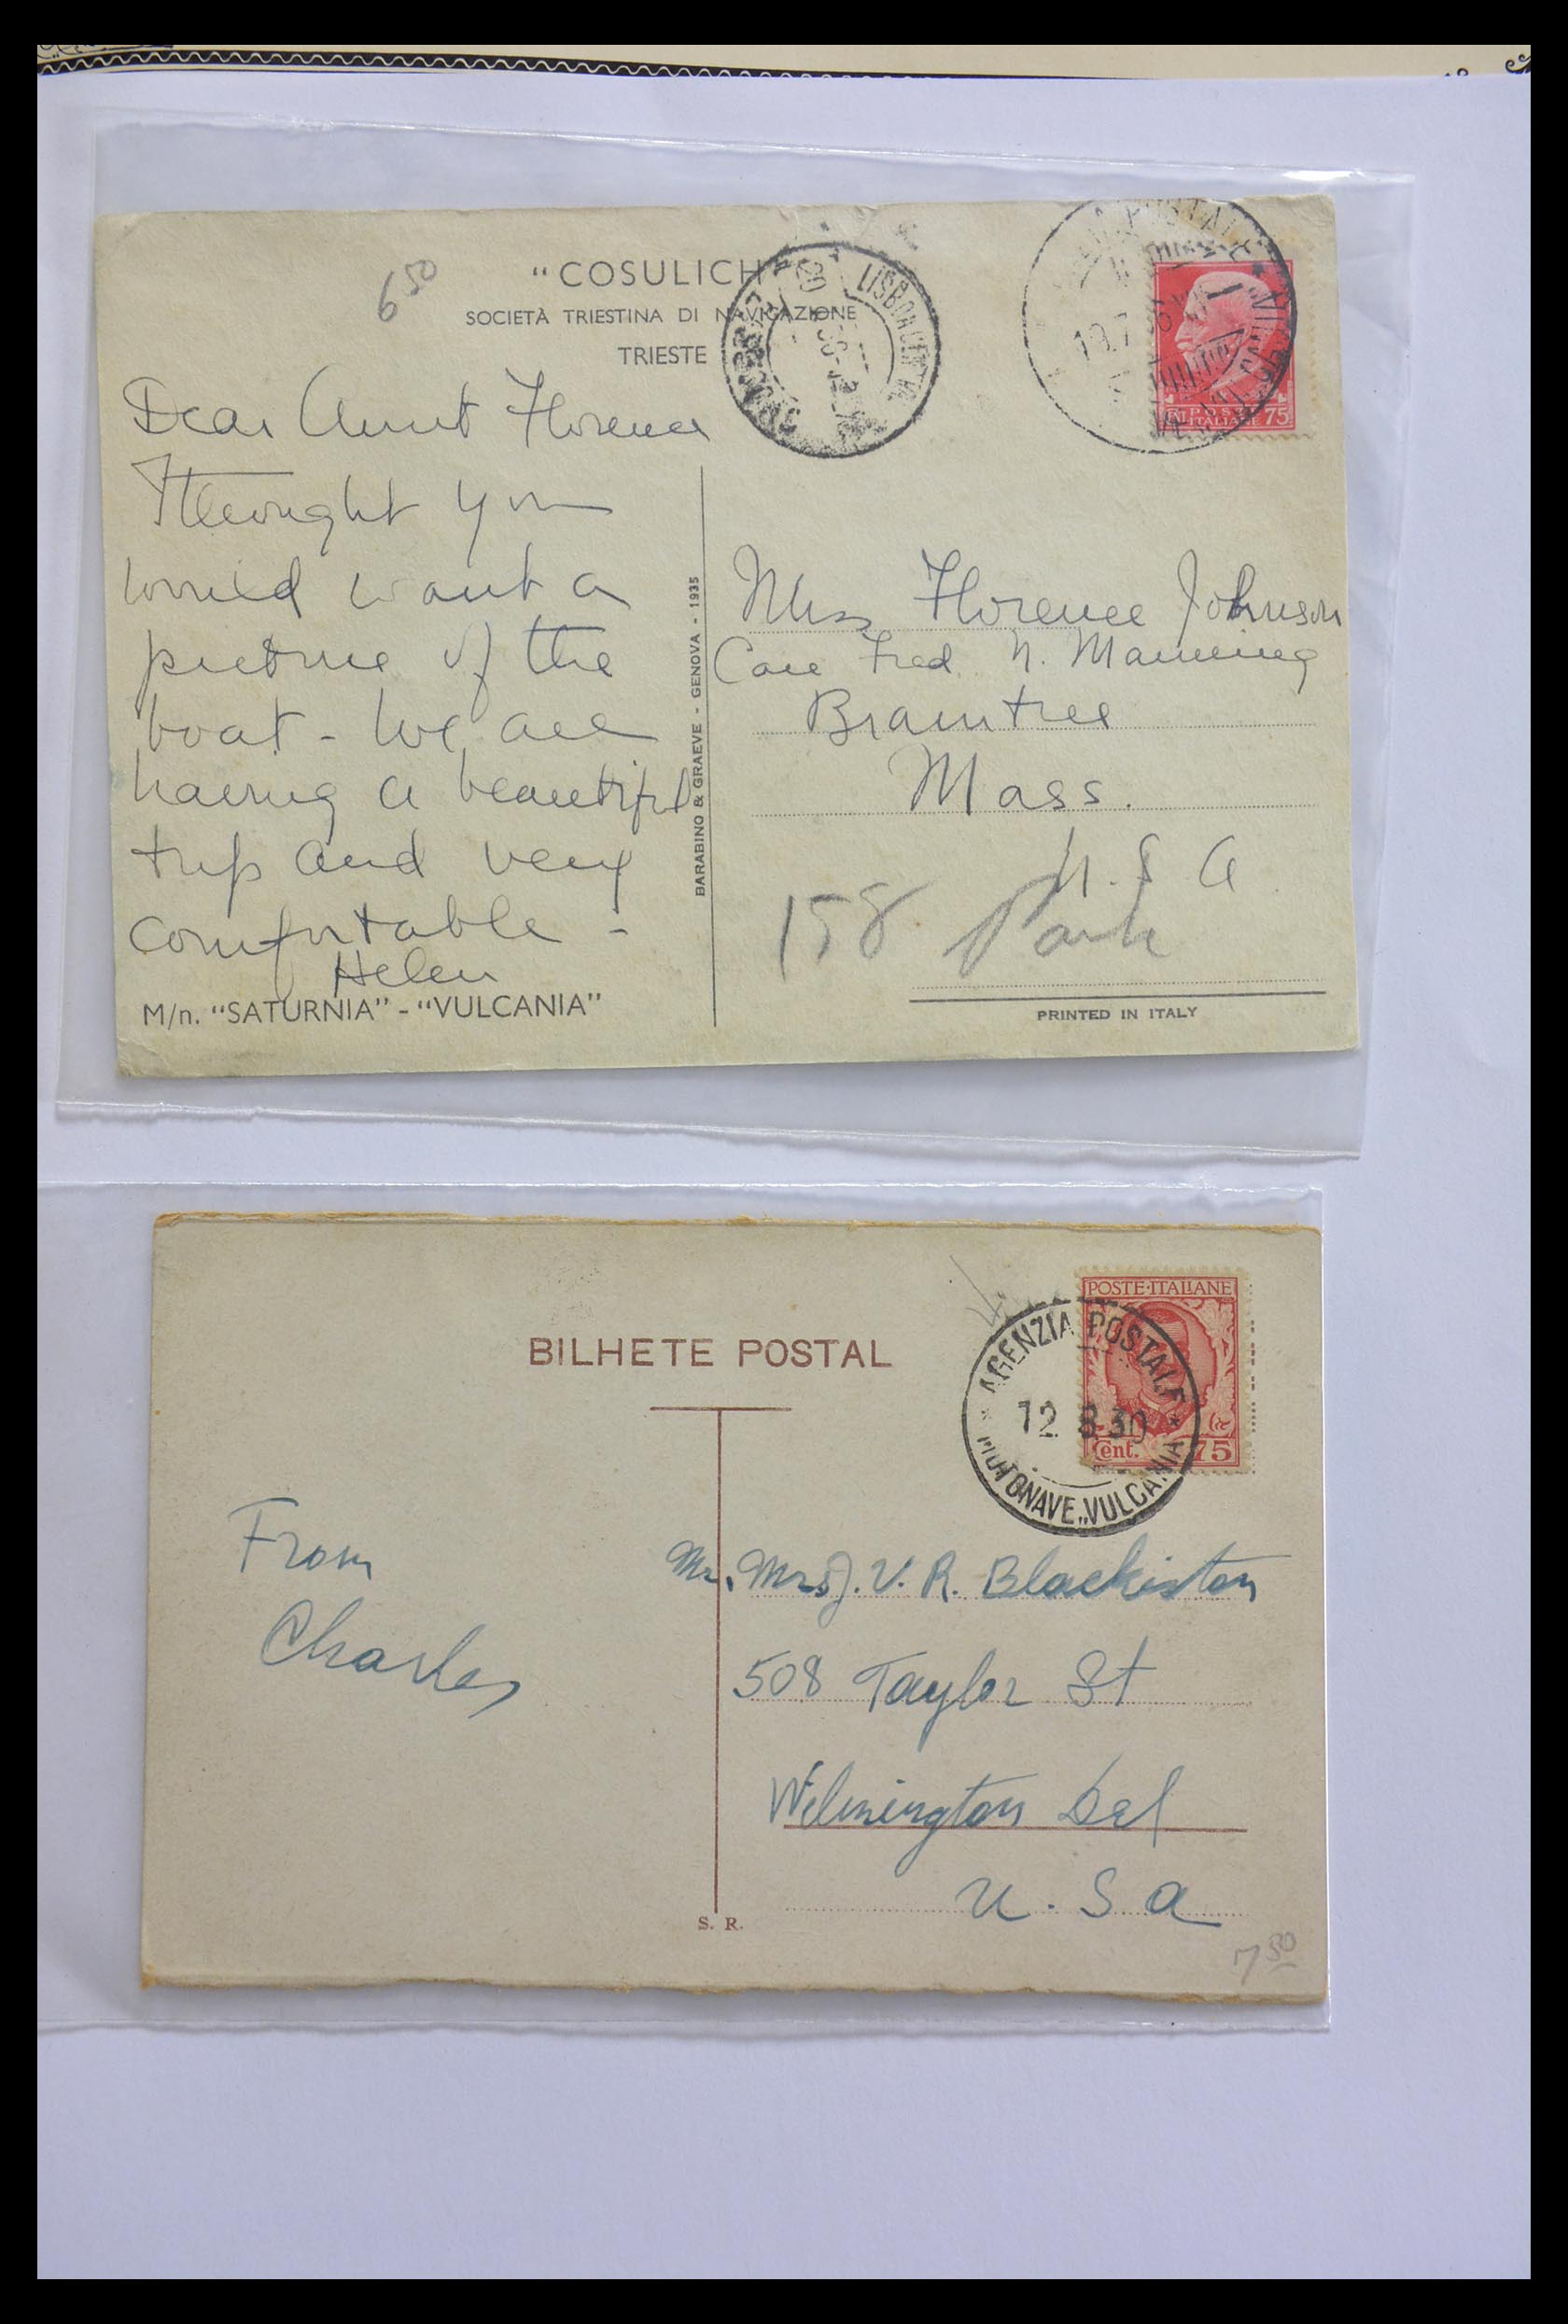 6 50
"COSULICH"
SOCIETÀ TRIESTINA DI NAVIGAZIONE
TRIESTE
LISBOA CENTRAL
75
Dear Aunt Florence
I thought you
would want a
picture of the
boat - We are
having a beautiful
trip and very
comfortable -
Helen
M/n. "SATURNIA" - "VULCANIA"
BARABINO & GRAEVE - GENOVA - 1935
Miss Florence Johnson
Care Fred N. Manning
Braintree
Mass.
U.S.A.
158 Park
PRINTED IN ITALY
BILHETE POSTAL
POSTE·ITALIANE
Cent. 75
AGENZIA POSTALE
12. 8.30
MOTONAVE „VULCANIA"
From
Charles
Mr. Mrs J. V. R. Blackiston
508 Taylor St
Wilmington Del
U. S. a
S. R.
7 50